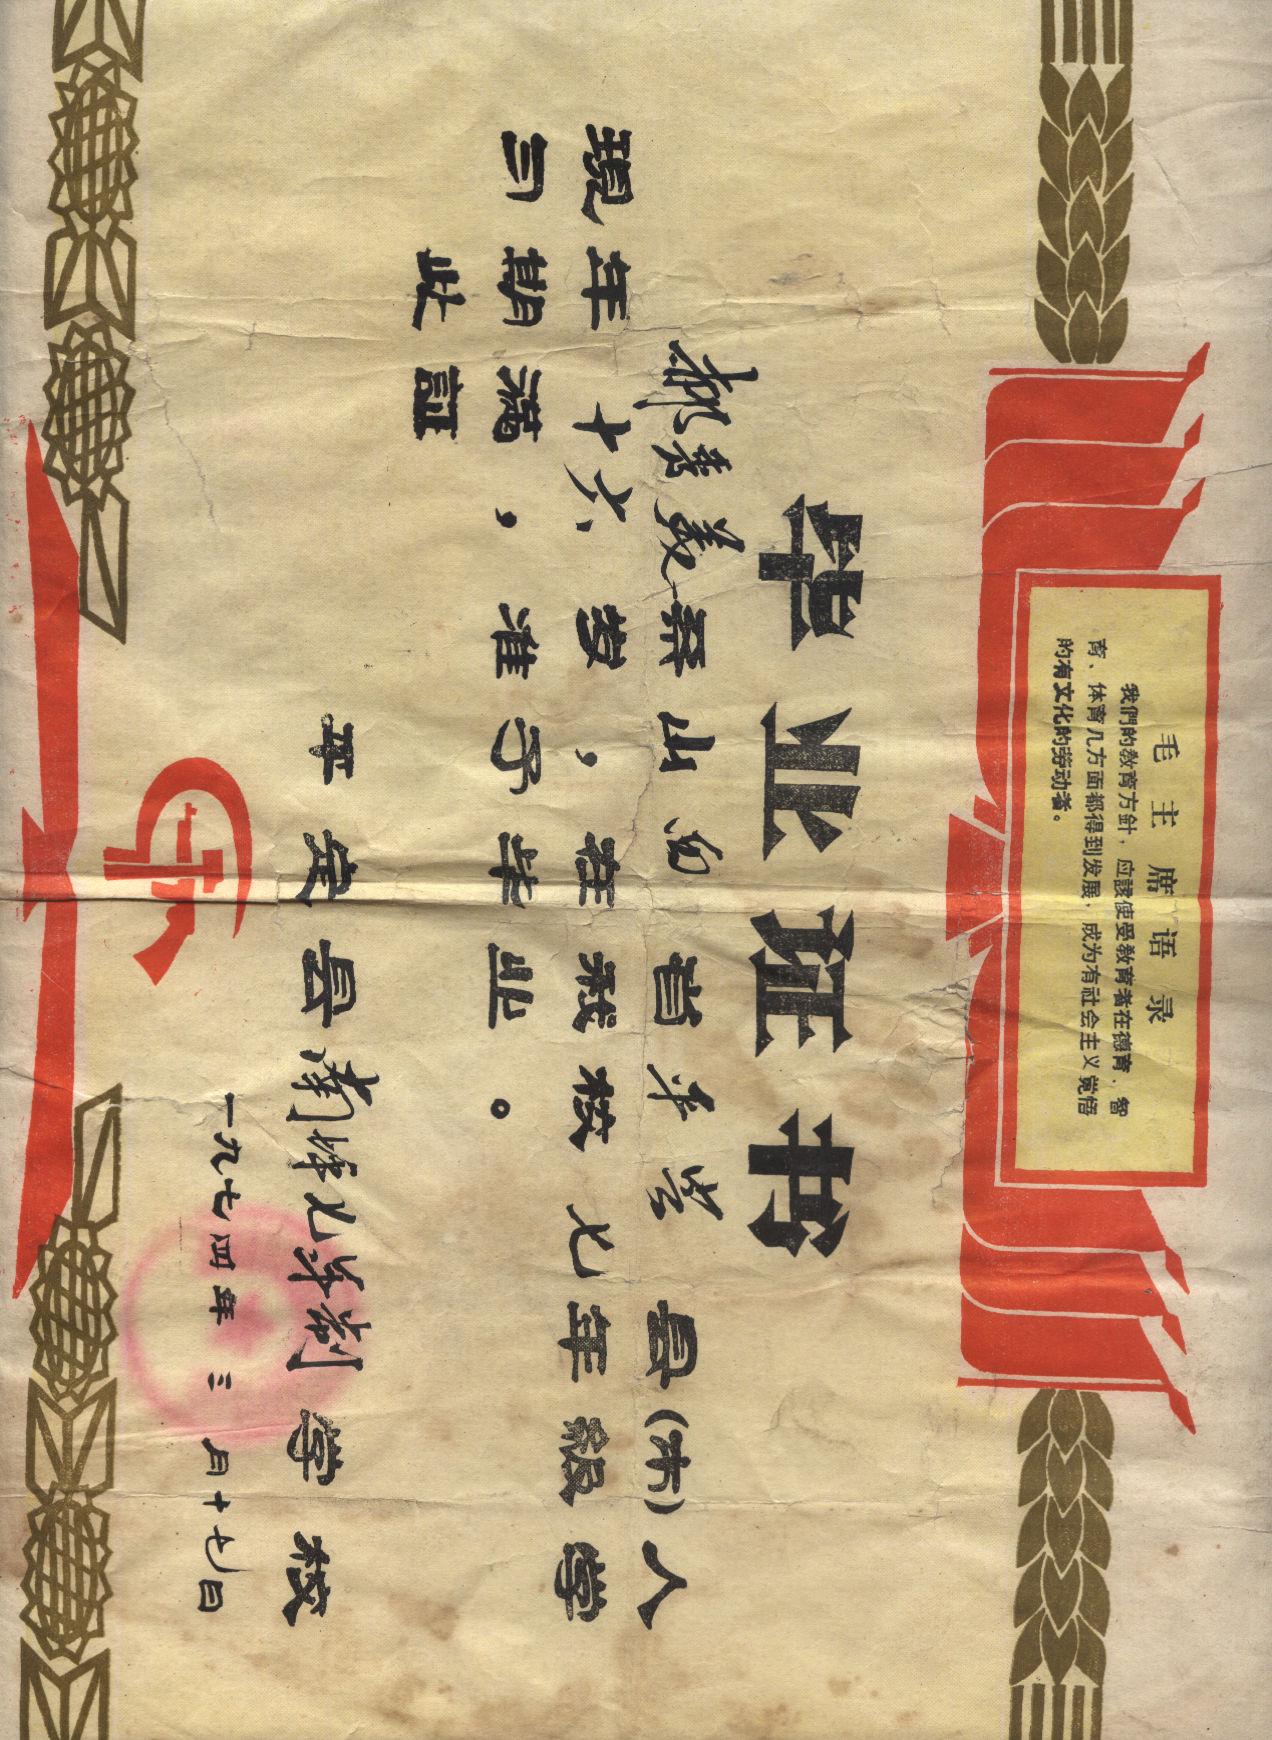 毛主席语录
我們的教育方針，应該使受教育者在德育、智
育、体育几方面都得到发展，成为有社会主义觉悟
的有文化的劳动者。
毕业证书
郝秀義系山西省平定县(市)人
现年十六岁，在我校七年级学
习期满，准予毕业。
此証
平定县 七年制学校
一九七四年三月十七日